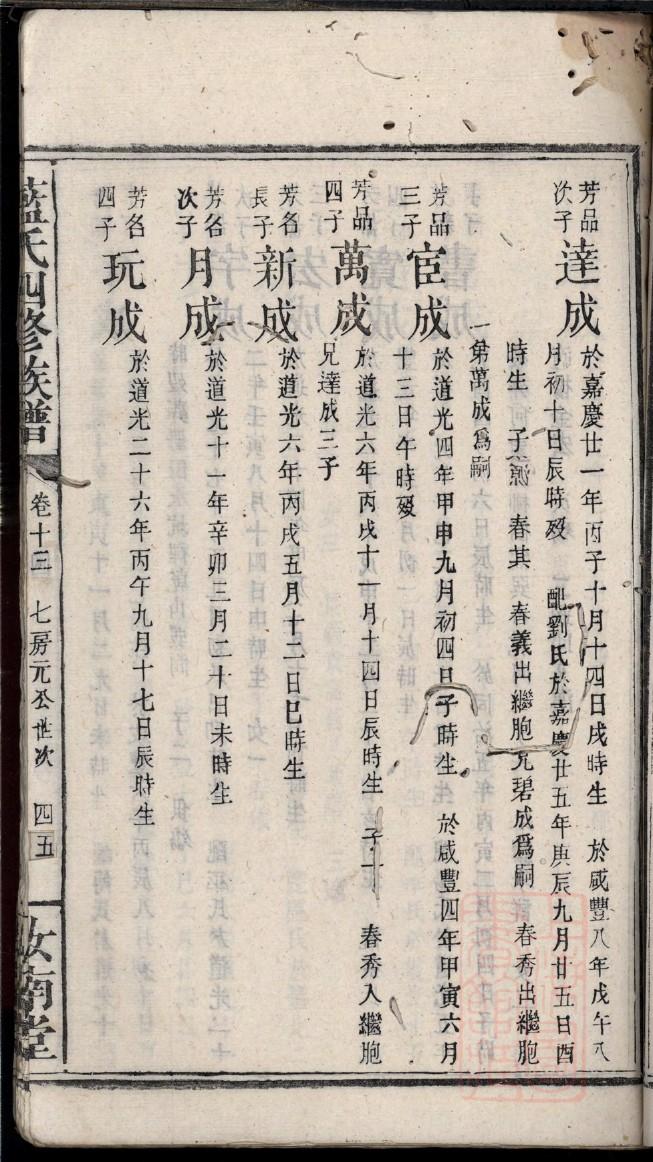 芳品次子達成於嘉慶廿一年丙子十月十四日戌時生 於咸豐八年戊午八
月初十日辰時歿 配劉氏於嘉慶廿五年庚辰九月廿五日酉
時生 子 春其 春義出繼胞兄碧成爲嗣 春秀出繼胞
弟萬成爲嗣
芳品三子宦成於道光四年甲申九月初四日子時生 於咸豐四年甲寅六月
十三日午時歿
芳品四子萬成於道光六年丙戌十一月十四日辰時生 子一 春秀入繼胞
兄達成三子
芳名長子新成於道光六年丙戌五月十二日巳時生
芳名次子月成於道光十一年辛卯三月二十日未時生
芳名四子玩成於道光二十六年丙午九月十七日辰時生
藍氏四修族譜 卷十三 七房元公世次 四五 汝南堂